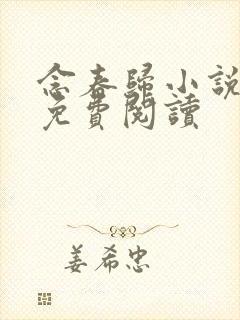 念春歸小說
免費閱讀
姜希忠